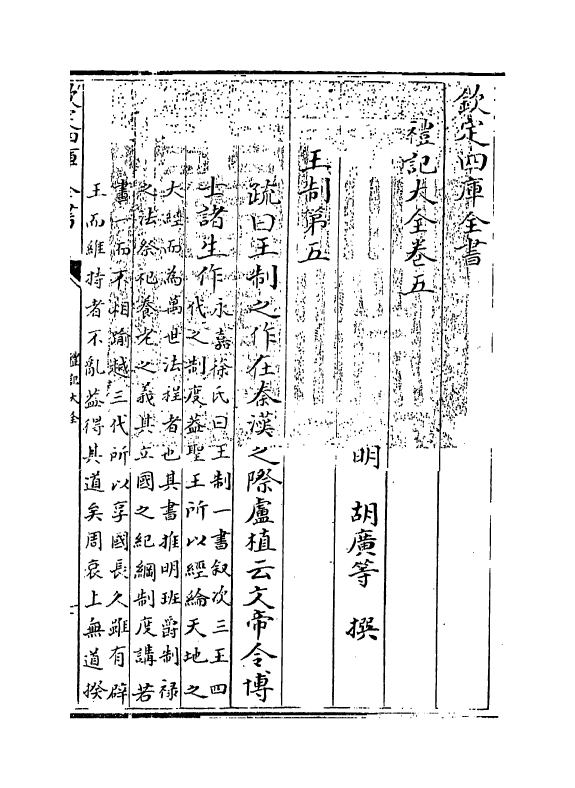 欽定四庫全書
禮記大全卷五
明 胡廣等 撰
王制第五
疏曰王制之作在秦漢之際盧植云文帝令博
士諸生作
永嘉徐氏曰王制一書叙次三王四
代之制度蓋聖王所以經綸天地之
大經而為萬世法程者也其書推明班爵制禄
之法祭祀養老之義其立國之紀綱制度講若
畫一而不相踰越三代所以享國長久雖有辟
王而維持者不亂益得其道矣周衰上無道揆
欽定四庫全書
禮記大全
一